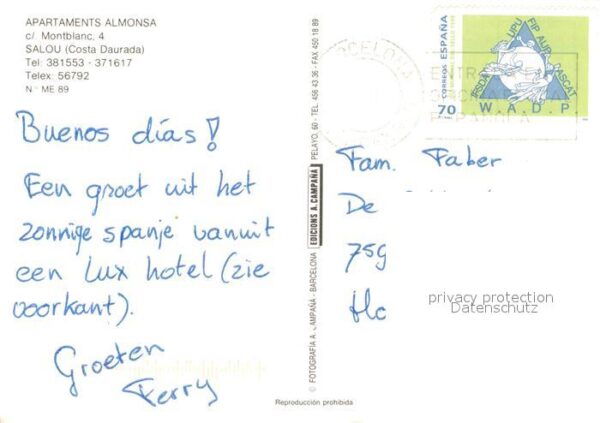 APARTAMENTS ALMONSA
c/ Montblanc, 4
SALOU (Costa Daurada)
Tel: 381553 - 371617
Telex: 56792
N.° ME 89
Buenos días!
Een groet uit het
zonnige spanje vanuit
een lux hotel (zie
voorkant).
Groeten
Ferry
© FOTOGRAFÍA A. CAMPAÑA - BARCELONA EDICIONS A. CAMPAÑA PELAYO, 60 - TEL. 456 43 36 - FAX 450 18 89
Reproducción prohibida
BARCELONA
CORREOS ESPAÑA
70
UPU FIP AIJP ASCAT IFSDA
W.A.D.P
Fam. Faber
De
759
Ho
privacy protection
Datenschutz